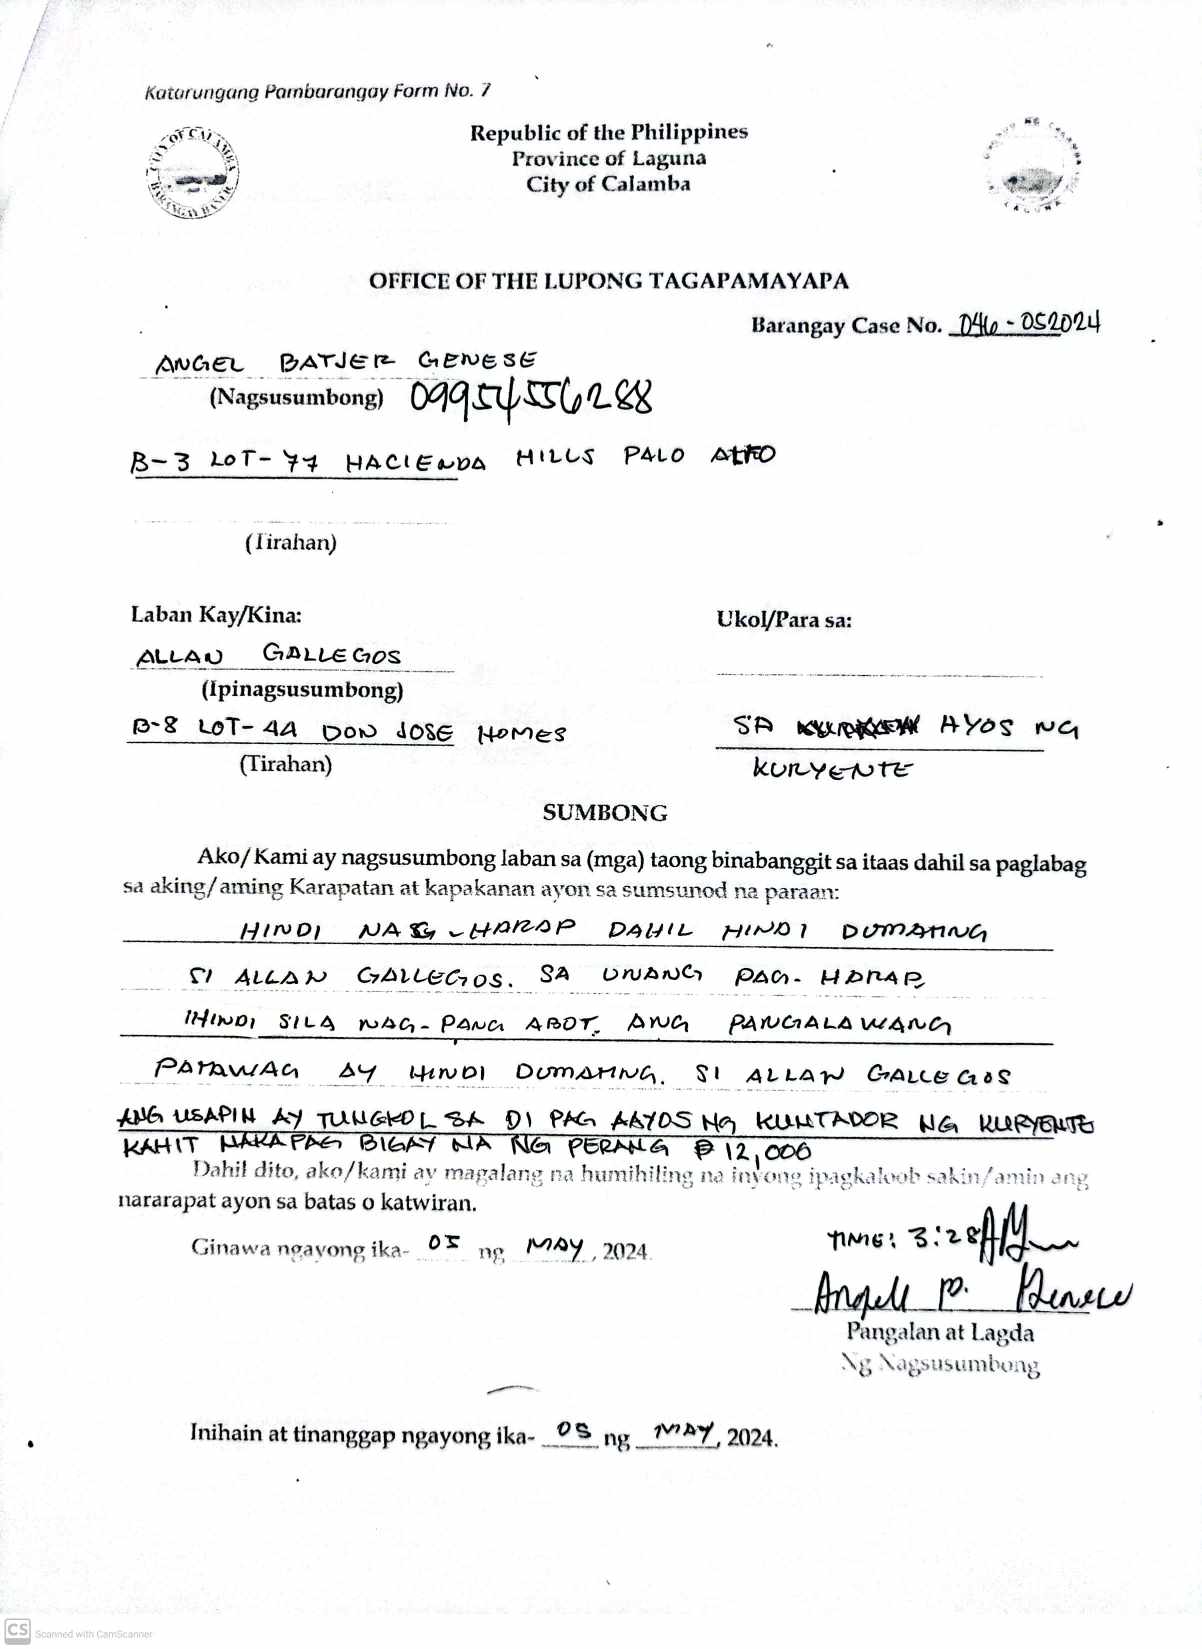 Katarungang Pambarangay Form No. 7
CITY OF CALAMBA
BARANGAY BANLIC
Republic of the Philippines
Province of Laguna
City of Calamba
LAGUNA
OFFICE OF THE LUPONG TAGAPAMAYAPA
Barangay Case No. 046-052024
ANGEL BATJER GENESE
(Nagsusumbong) 09954556288
B-3 LOT-77 HACIENDA HILLS PALO ALTO
(Tirahan)
Laban Kay/Kina:
Ukol/Para sa:
ALLAN GALLEGOS
(Ipinagsusumbong)
B-8 LOT-4A DON JOSE HOMES
SA AYOS NG
(Tirahan)
KURYENTE
SUMBONG
Ako/Kami ay nagsusumbong laban sa (mga) taong binabanggit sa itaas dahil sa paglabag
sa aking/aming Karapatan at kapakanan ayon sa sumsunod na paraan:
HINDI NAG-HARAP DAHIL HINDI DUMATING
SI ALLAN GALLEGOS. SA UNANG PAG-HARAP
HINDI SILA NAG-PANG ABOT. ANG PANGALAWANG
PATAWAG AY HINDI DUMATING. SI ALLAN GALLEGOS
ANG USAPIN AY TUNGKOL SA DI PAG AAYOS NG KUNTADOR NG KURYENTE
KAHIT NAKAPAG BIGAY NA NG PERANG ₱12,000
Dahil dito, ako/kami ay magalang na humihiling na inyong ipagkaloob sakin/amin ang
nararapat ayon sa batas o katwiran.
TIME: 3:28
Ginawa ngayong ika- 05 ng MAY, 2024.
Pangalan at Lagda
Ng Nagsusumbong
Inihain at tinanggap ngayong ika- 05 ng MAY, 2024.
CS Scanned with CamScanner